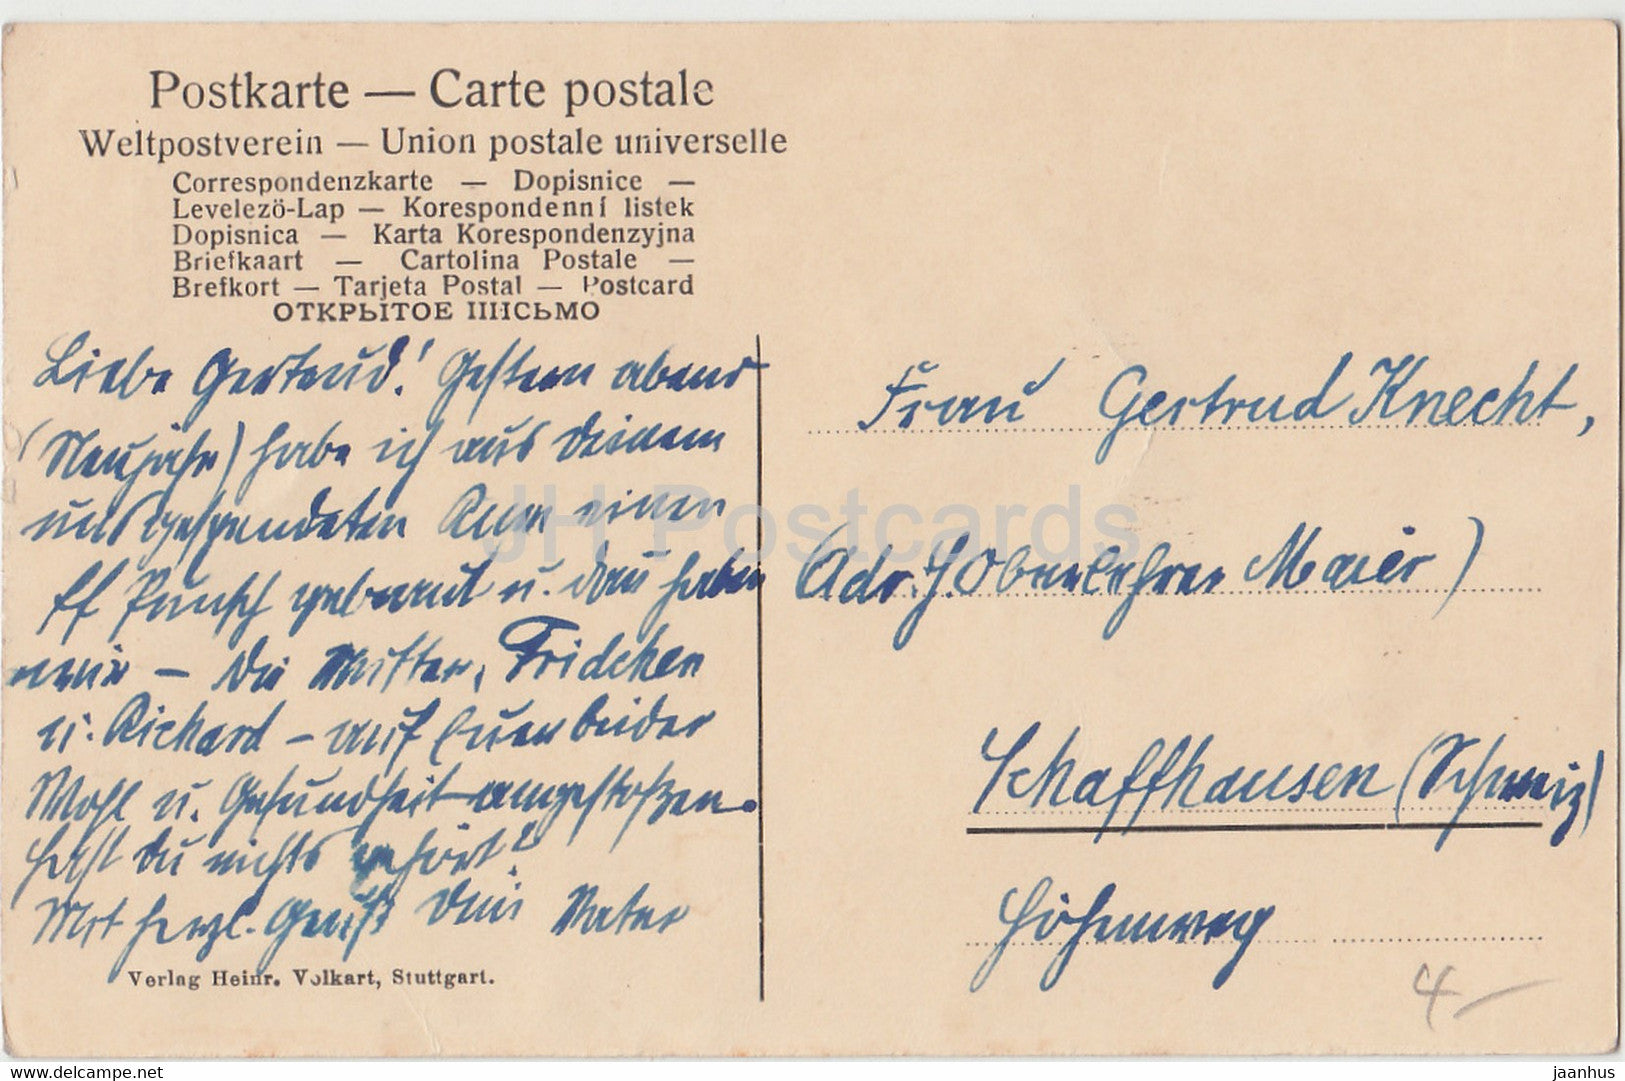 Postkarte — Carte postale
Weltpostverein — Union postale universelle
Correspondenzkarte — Dopisnice —
Levelezö-Lap — Korespondenní listek
Dopisnica — Karta Korespondenzyjna
Briefkaart — Cartolina Postale —
Brefkort — Tarjeta Postal — Postcard
ОТКРЫТОЕ ПИСЬМО
Liebe Gertrud! Gestern abend
(Neujahr) habe ich aus Deinem
uns gespendeten Rum einen
ff Punsch gebraut u. dau haben
wir – die Mutter, Fridchen
u. Richard – auf Euer beider
Wohl u. Gesundheit angestoßen.
Hast du nichts gehört?
Mit herzl. Gruß Dein Vater
Verlag Heinr. Volkart, Stuttgart.
Frau Gertrud Knecht,
(Adr. H. Oberlehrer Maier)
Schaffhausen (Schweiz)
Höhenweg
4
JH Postcards
delcampe.net
jaanhus